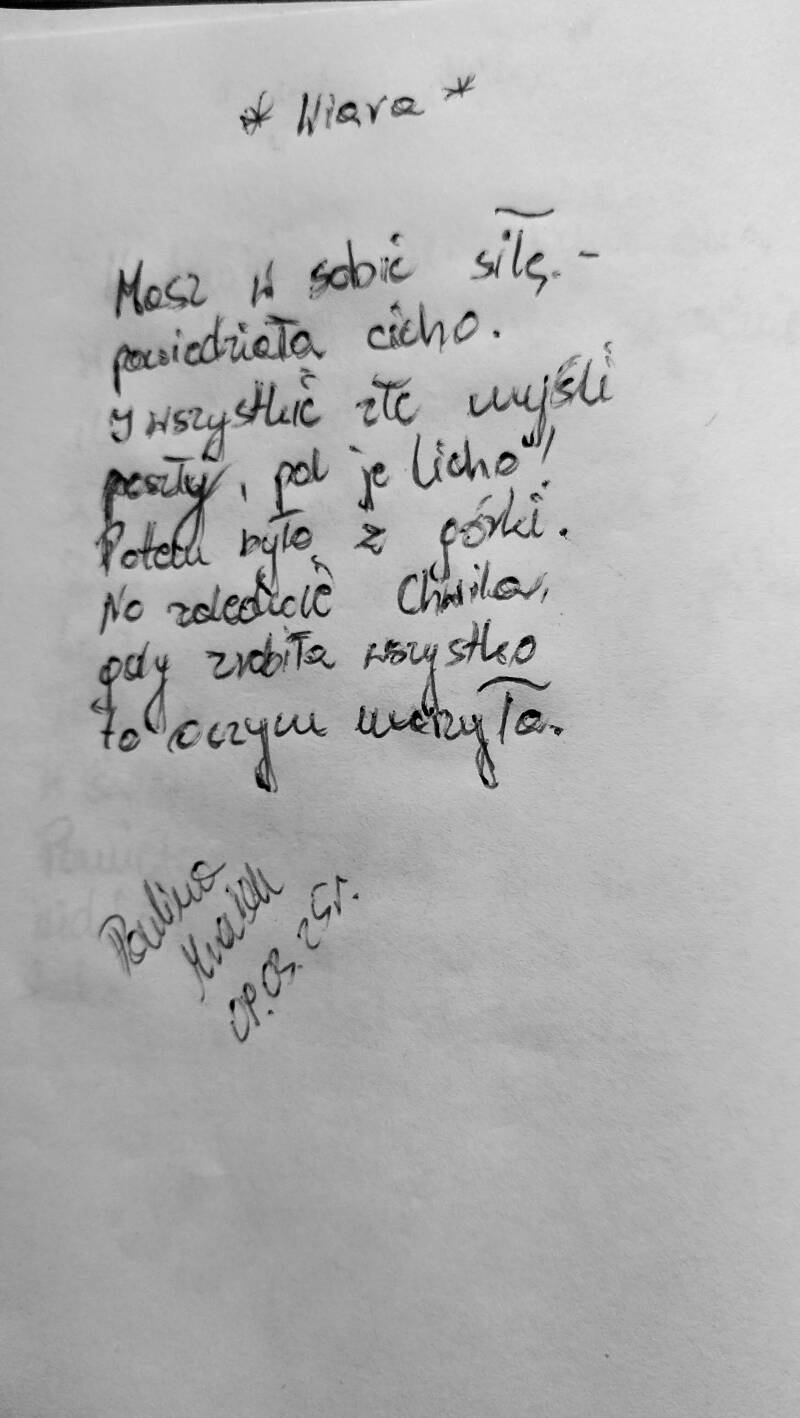 * Wiara *
Masz w sobie siłę. -
powiedziała cicho.
I wszystkie złe myśli
poszły, pal je licho"!
Potem było z górki.
No zaledwie chwila,
gdy zrobiła wszystko
to oczym marzyła.
Paulina
09.03.25r.